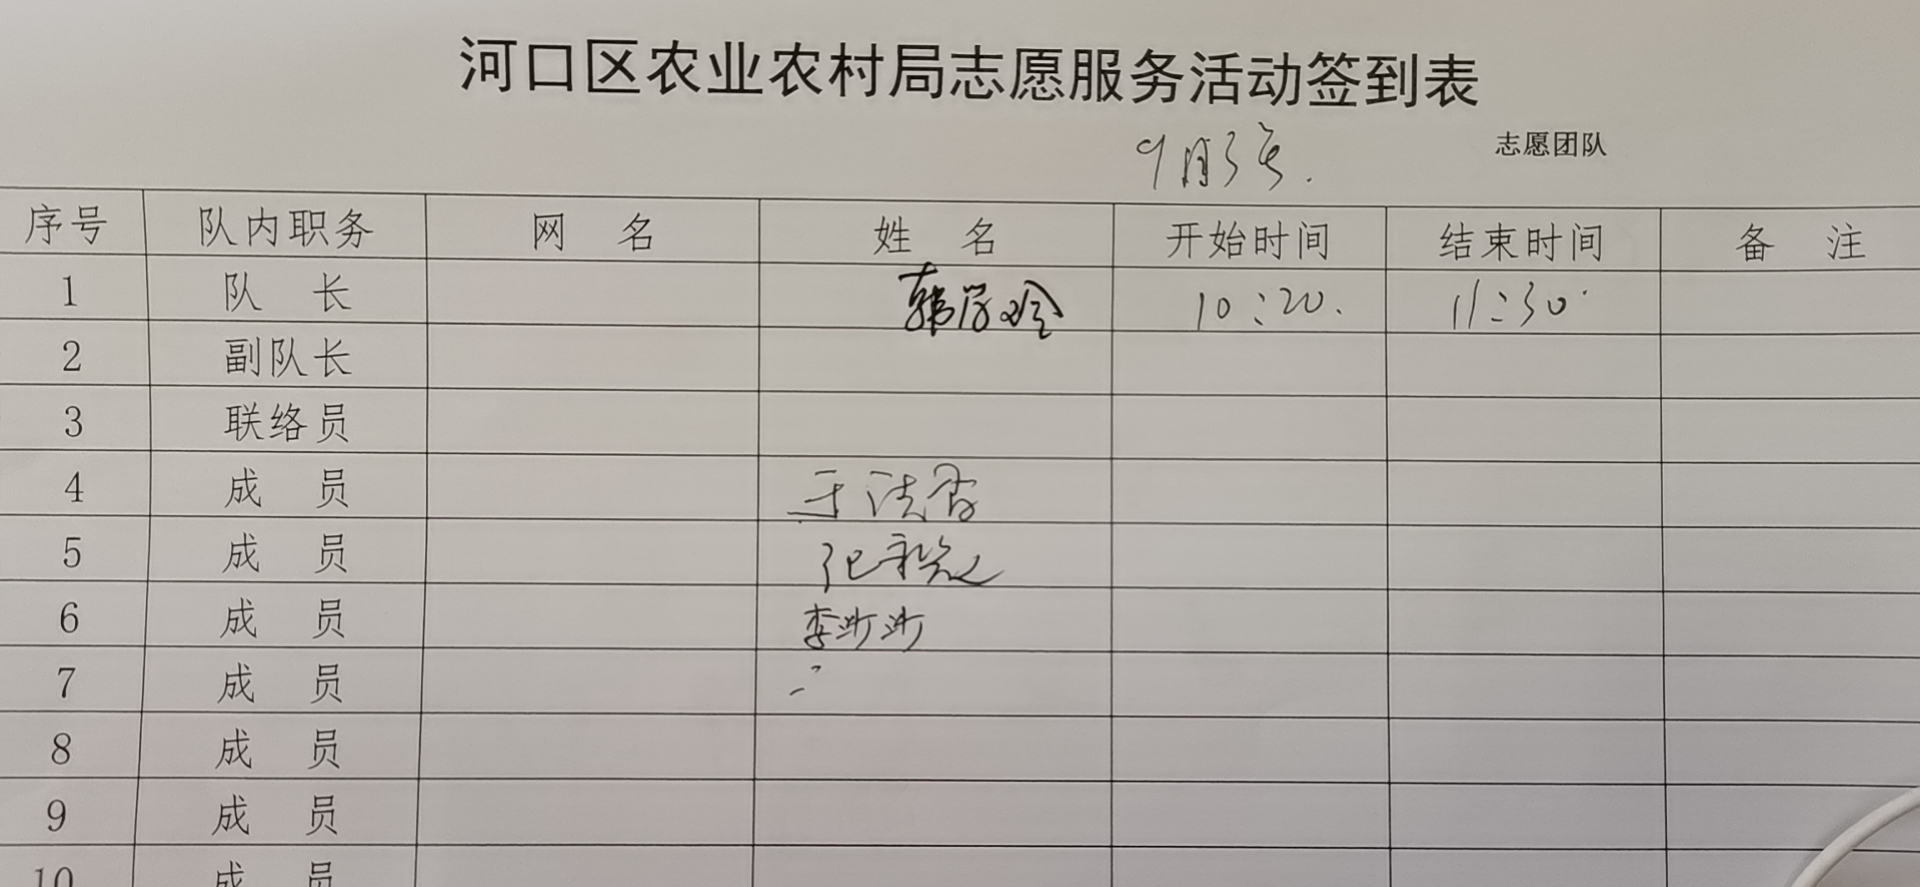 河口区农业农村局志愿服务活动签到表
9月3号.
志愿团队
序号 队内职务 网 名 姓 名 开始时间 结束时间 备 注
1 队 长 韩学玲 10:20. 11:30.
2 副队长
3 联络员
4 成 员 于法香
5 成 员
6 成 员 李涉涉
7 成 员
8 成 员
9 成 员
10 成 员